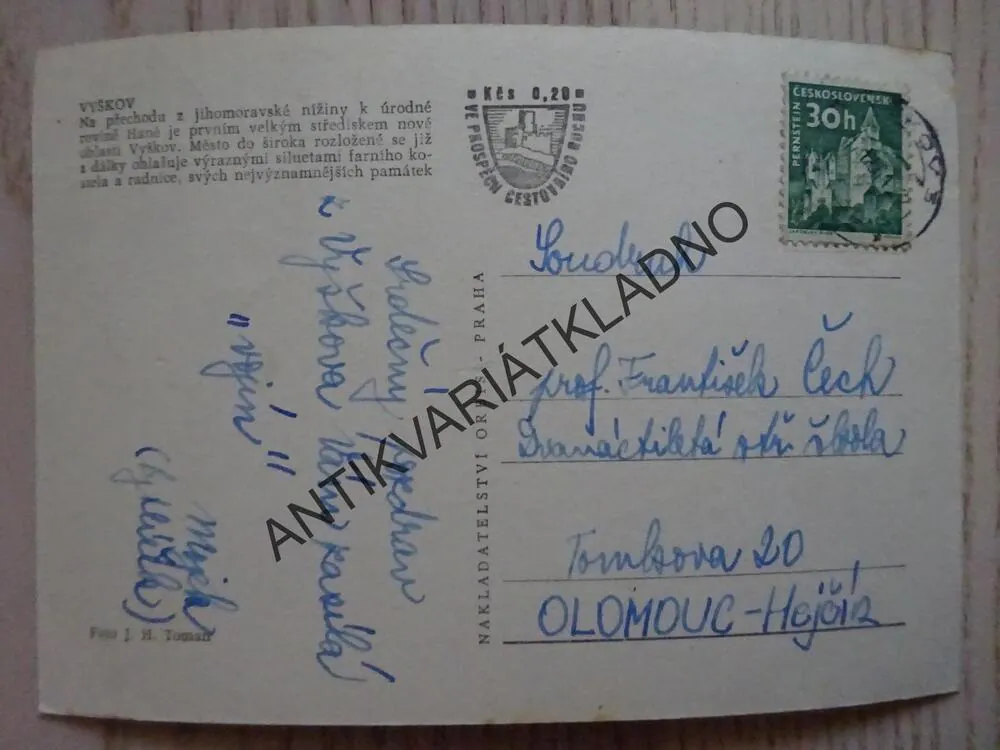 VYŠKOV
Na přechodu z jihomoravské nížiny k úrodné
rovině Hané je prvním velkým střediskem nové
oblasti Vyškov. Město do široka rozložené se již
z dálky ohlašuje výraznými siluetami farního ko-
stela a radnice, svých nejvýznamnějších památek
Kčs 0,20
VE PROSPĚCH CESTOVNÍHO RUCHU
PERNSTEJN
ČESKOSLOVENSKO
30h
Srdečný pozdrav
z Vyškova Vám zasílá
"vojín"
Foto J. H. Toman
NAKLADATELSTVÍ ORBIS - PRAHA
Soudruh
prof. František Čech
Dvanáctiletá stř. škola
Tomkova 20
OLOMOUC-Hejčín
ANTIKVARIÁTKLADNO